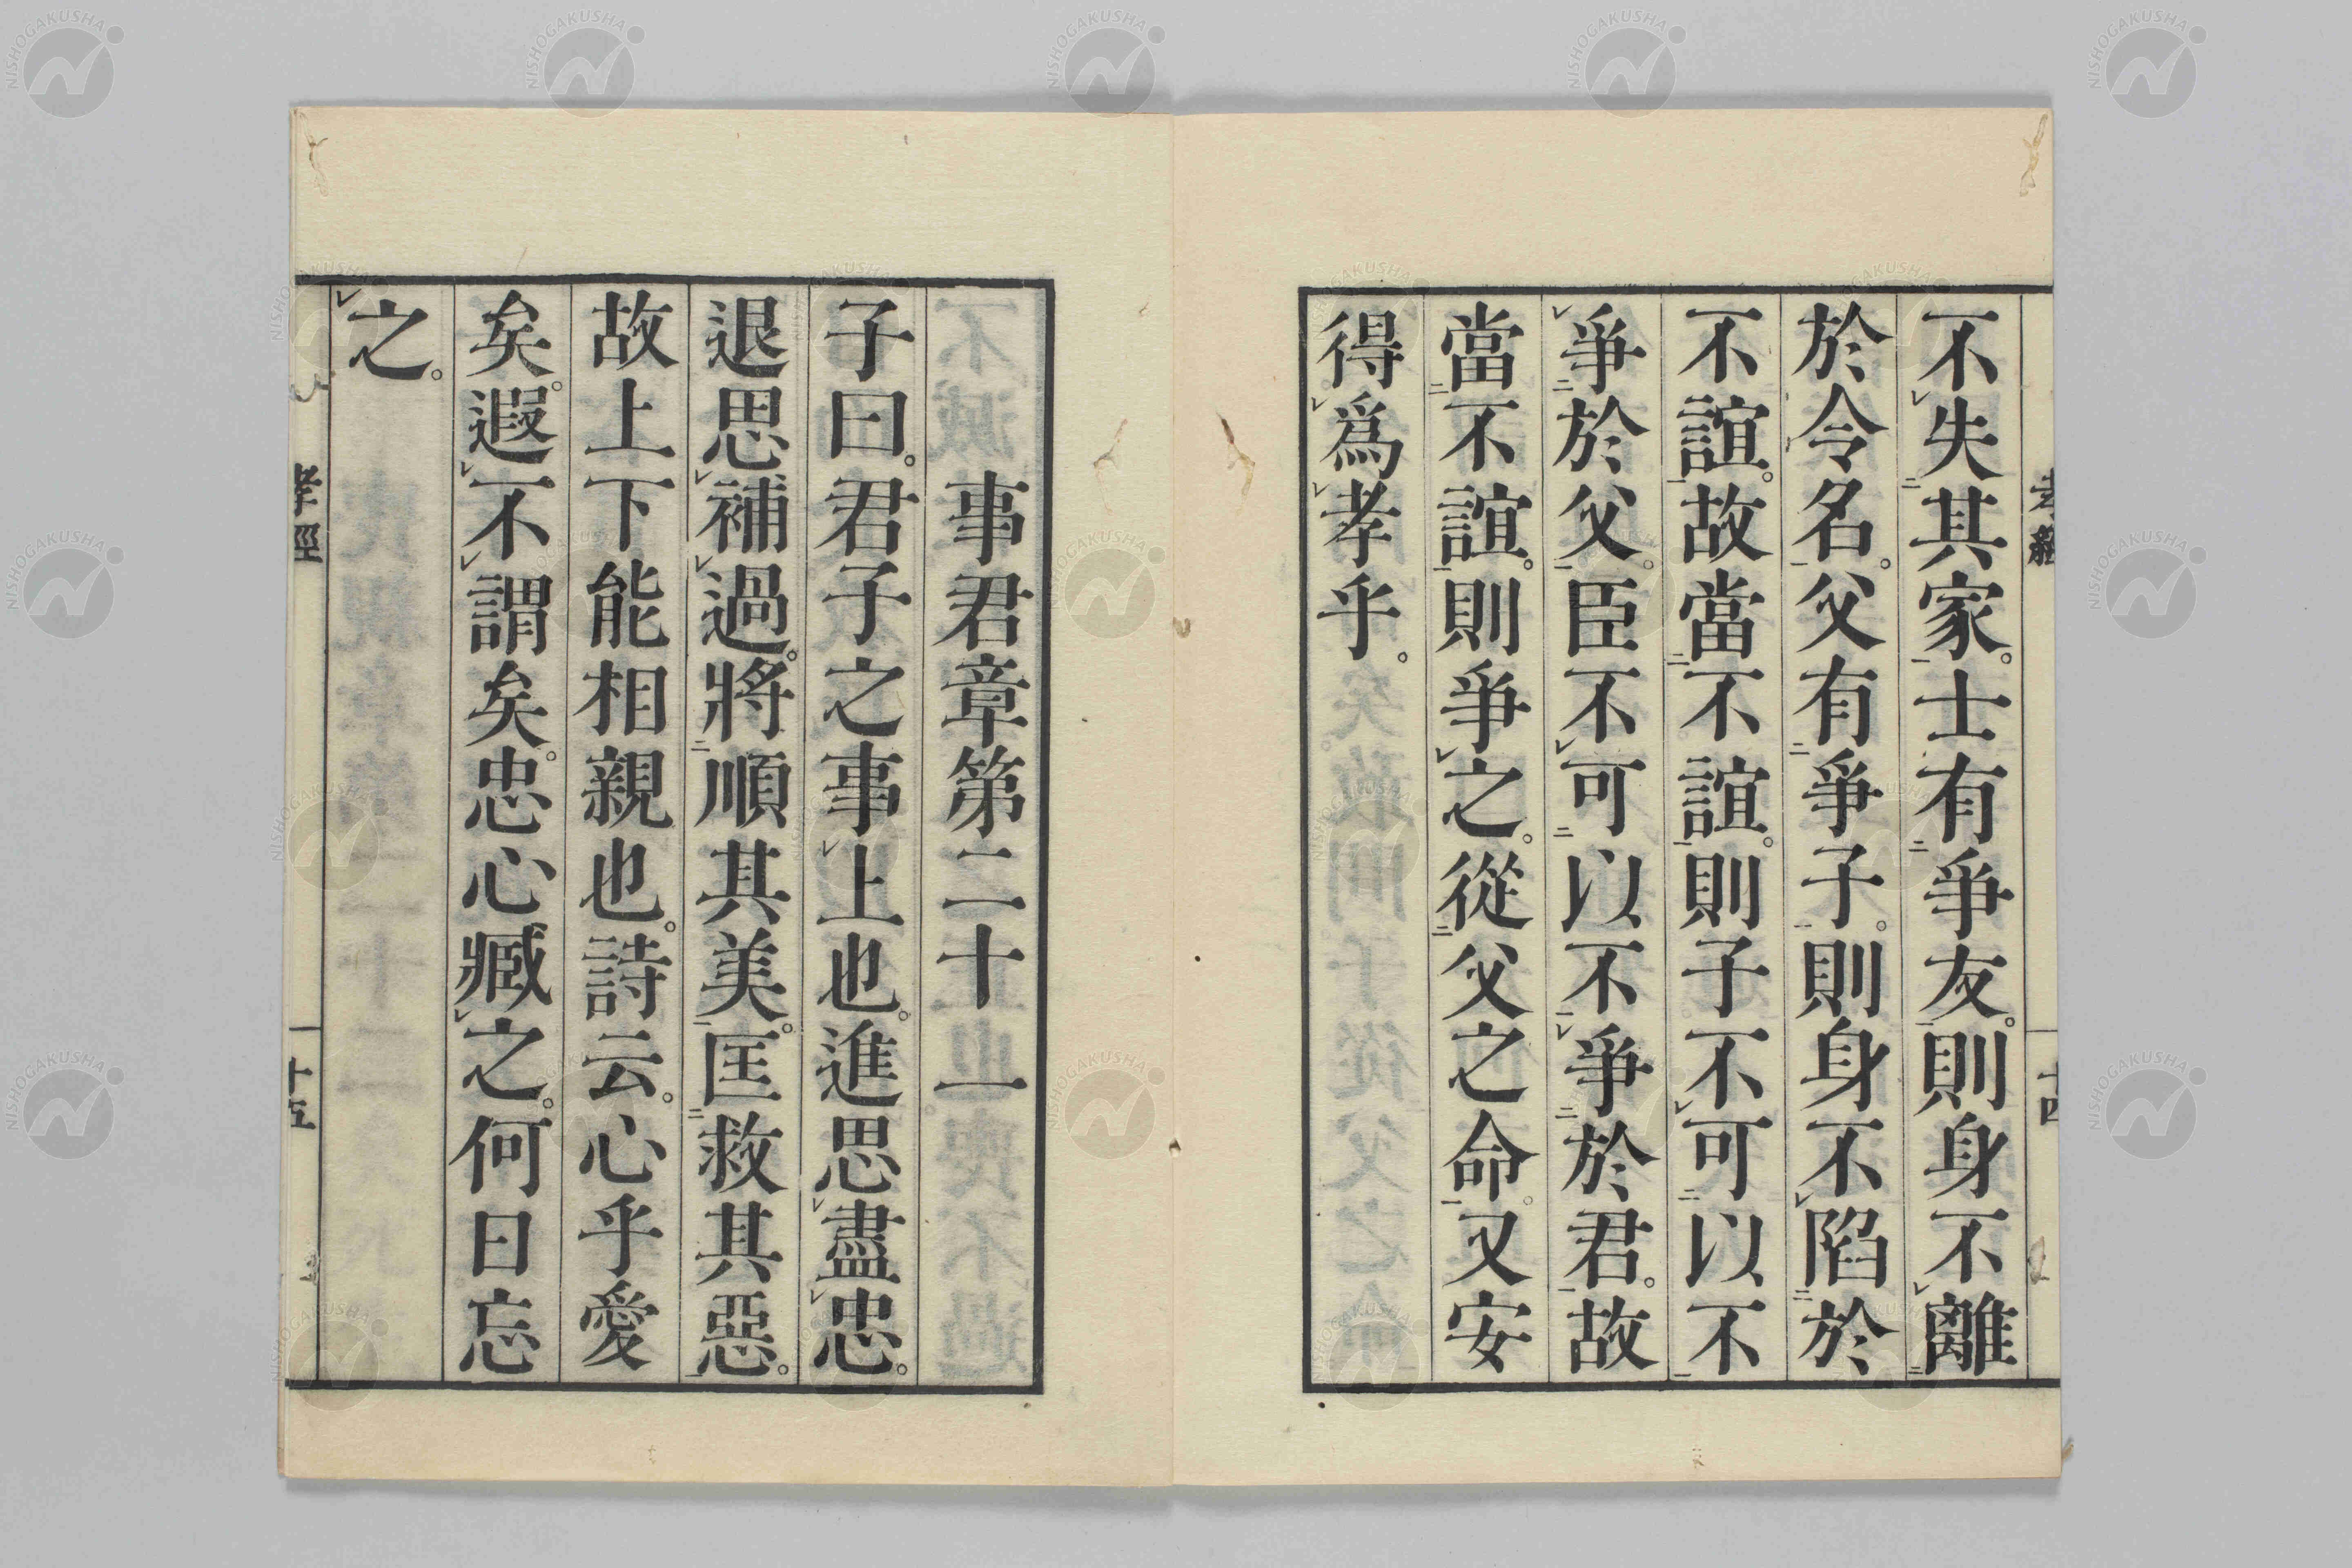 不失其家。士有爭友。則身不離
於令名。父有爭子。則身不陷於
不誼。故當不誼。則子不可以不
爭於父。臣不可以不爭於君。故
當不誼。則爭之。從父之命。又安
得爲孝乎。
事君章第二十一
子曰。君子之事上也。進思盡忠。
退思補過。將順其美。匡救其惡。
故上下能相親也。詩云。心乎愛
矣。遐不謂矣。忠心臧之。何日忘
之。
孝經
十五
孝經
十四
NISHOGAKUSHA